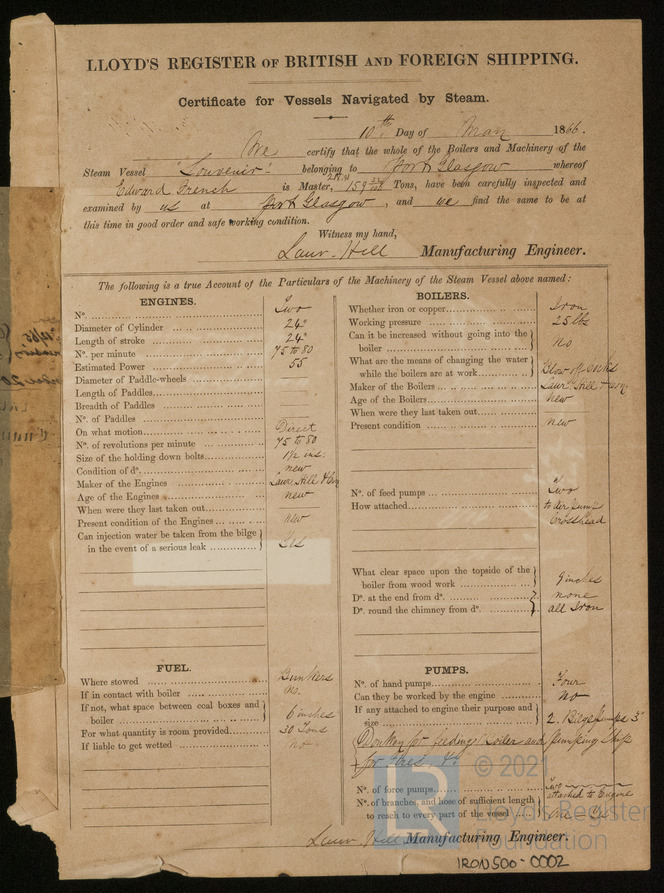 LLOYD'S REGISTER OF BRITISH AND FOREIGN SHIPPING.
Certificate for Vessels Navigated by Steam.
10th Day of May 1866.
We certify that the whole of the Boilers and Machinery of the
Steam Vessel "Souvenir" belonging to Port Glasgow whereof
Edward French is Master, 159 Tons, have been carefully inspected and
examined by us at Port Glasgow, and we find the same to be at
this time in good order and safe working condition.
Witness my hand,
Laur. Hill Manufacturing Engineer.
The following is a true Account of the Particulars of the Machinery of the Steam Vessel above named:
ENGINES.
No. Two
Diameter of Cylinder 24"
Length of stroke 24"
No. per minute 75 to 80
Estimated Power 55
Diameter of Paddle-wheels
Length of Paddles
Breadth of Paddles
No. of Paddles
On what motion Direct
No. of revolutions per minute 75 to 80
Size of the holding down bolts 1½ ins.
Condition of do. new
Maker of the Engines Laur. Hill & Co
Age of the Engines new
When were they last taken out
Present condition of the Engines new
Can injection water be taken from the bilge
in the event of a serious leak } Yes
FUEL.
Where stowed Bunkers
If in contact with boiler no.
If not, what space between coal boxes and
boiler } 6 inches
For what quantity is room provided 30 Tons
If liable to get wetted no.
BOILERS.
Whether iron or copper Iron
Working pressure 25 lbs
Can it be increased without going into the
boiler } no
What are the means of changing the water
while the boilers are at work } Blow off cocks
Maker of the Boilers Laur. Hill & Co
Age of the Boilers new
When were they last taken out
Present condition new
No. of feed pumps Two
How attached to air pump
Crosshead
What clear space upon the topside of the
boiler from wood work } 9 inches
Do. at the end from do. } none
Do. round the chimney from do. } all Iron
PUMPS.
No. of hand pumps Four
Can they be worked by the engine No
If any attached to engine their purpose and
size } 2 Bilge pumps 3"
Donkey for feeding boiler and pumping ship
for fires, &c.
No. of force pumps Two attached to Engine
No. of branches, and hose of sufficient length
to reach to every part of the vessel } one Yes
Laur. Hill Manufacturing Engineer.
© 2021
Lloyd's Register
Foundation
IRON500-0002